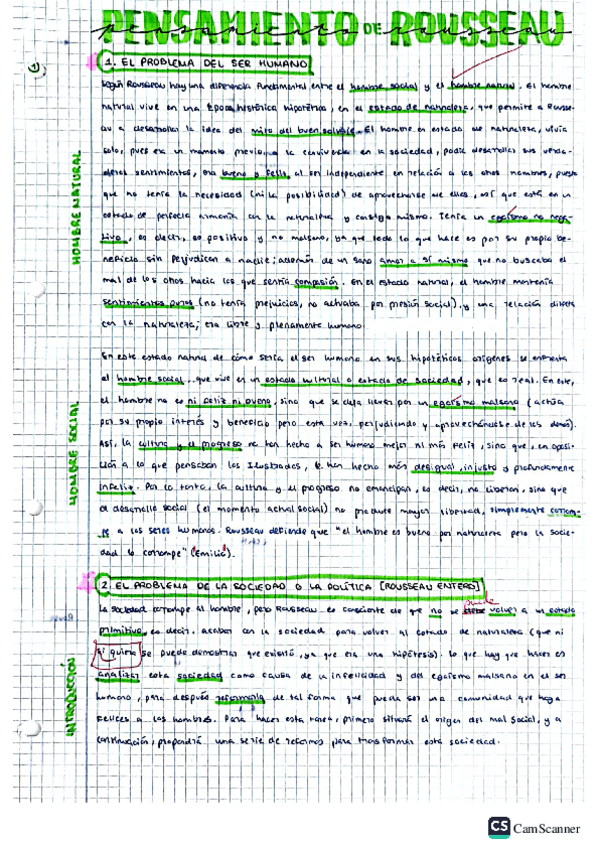 PENSAMIENTO DE ROUSSEAU
pensamiento rousseau
1
1. EL PROBLEMA DEL SER HUMANO
HOMBRE NATURAL
Según Rousseau hay una diferencia fundamental entre el hombre social y el hombre natural. El hombre
natural vive en una época histórica hipotética, en el estado de naturaleza, que permite a Rousse-
au a desarrollar la idea del mito del buen salvaje. El hombre en estado de naturaleza, vivía
solo, pues era un momento previo a la convivencia en la sociedad, podía desarrollar sus verda-
deros sentimientos, era bueno y feliz al ser independiente en relación a los otros hombres, puesto
que no tenía la necesidad (ni la posibilidad) de aprovecharse de ellos, así que está en un
estado de perfecta armonía con la naturaleza y consigo mismo. Tenía un egoísmo no nega-
tivo, es decir, es positivo y no malsano, ya que todo lo que hace es por su propio be-
neficio sin perjudicar a nadie; además de un sano amor a sí mismo que no buscaba el
mal de los otros hacia los que sentía compasión. En el estado natural, el hombre mantenía
sentimientos puros (no tenía prejuicios, no actuaba por presión social), y una relación directa
con la naturaleza; era libre y plenamente humano.
HOMBRE SOCIAL
En este estado natural de cómo sería el ser humano en sus hipotéticos orígenes se enfrenta
al hombre social, que vive en un estado cultural o estado de sociedad, que es real. En este,
el hombre no es ni feliz ni bueno, sino que se deja llevar por un egoísmo malsano (actúa
por su propio interés y beneficio pero esta vez, perjudicando y aprovechándose de los demás).
Así, la cultura y el progreso no han hecho a ser humano mejor ni más feliz, sino que, en oposi-
ción a lo que pensaban los Ilustrados, le han hecho más desigual, injusto y profundamente
infeliz. Por lo tanto, la cultura y el progreso no emancipan, es decir, no liberan, sino que
el desarrollo social (el momento actual social) no produce mayor libertad, simplemente corrom-
pe a los seres humanos. Rousseau defiende que "el hombre es bueno por naturaleza pero la socie-
dad lo corrompe" (Emilio).
2. EL PROBLEMA DE LA SOCIEDAD O LA POLÍTICA [ROUSSEAU ENTERO]
INTRODUCCIÓN
La sociedad corrompe al hombre, pero Rousseau es consciente de que no se puede volver a un estado
primitivo, es decir, acabar con la sociedad para volver al estado de naturaleza (que ni
si quiera se puede demostrar que existió, ya que era una hipótesis). Lo que hay que hacer es
analizar esta sociedad como causa de la infelicidad y del egoísmo malsano en el ser
humano, para después reformarla de tal forma que pueda ser una comunidad que haga
felices a los hombres. Para hacer esta tarea, primero situará el origen del mal social, y a
continuación, propondrá una serie de reformas para trasformar esta sociedad.
CS CamScanner